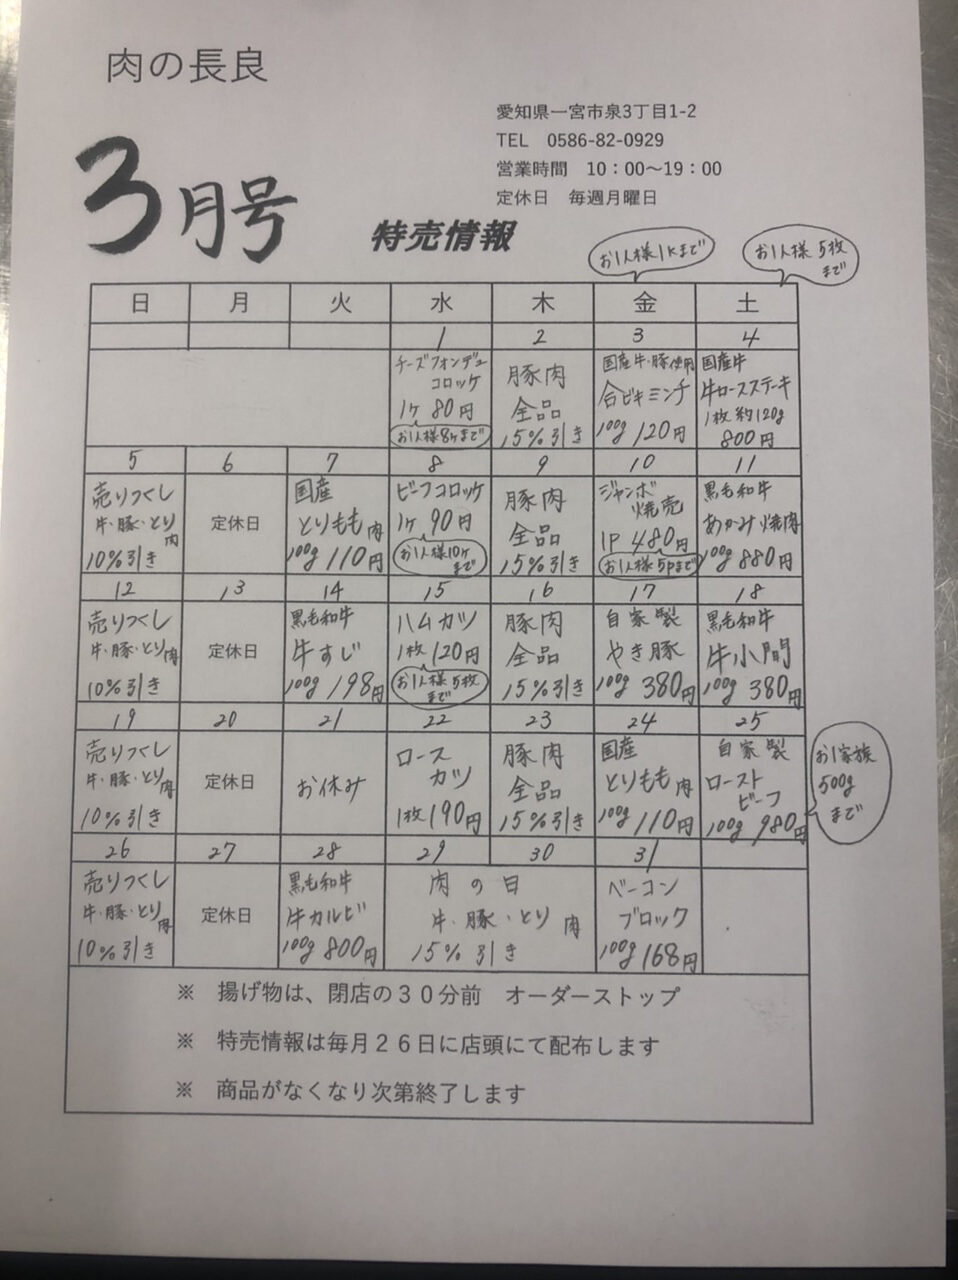 肉の長良
愛知県一宮市泉3丁目1-2
TEL 0586-82-0929
営業時間 10：00～19：00
定休日 毎週月曜日
3月号
特売情報
お1人様1kまで
お1人様5枚
まで
日 月 火 水 木 金 土
1 2 3 4
チーズフォンデュ
コロッケ
1ケ 80円
お1人様8ケまで
豚肉
全品
15%引き
国産牛・豚使用
合ビキミンチ
100g 120円
国産牛
牛ロースステーキ
1枚約120g
800円
5 6 7 8 9 10 11
売りつくし
牛・豚・とり肉
10%引き
定休日
国産
とりもも肉
100g 110円
ビーフコロッケ
1ケ 90円
お1人様10ケ
まで
豚肉
全品
15%引き
ジャンボ
焼売
1P 480円
お1人様5Pまで
黒毛和牛
あかみ焼肉
100g 880円
12 13 14 15 16 17 18
売りつくし
牛・豚・とり肉
10%引き
定休日
黒毛和牛
牛すじ
100g 198円
ハムカツ
1枚120円
お1人様5枚
まで
豚肉
全品
15%引き
自家製
やき豚
100g 380円
黒毛和牛
牛小間
100g 380円
19 20 21 22 23 24 25
売りつくし
牛・豚・とり肉
10%引き
定休日
お休み
ロース
カツ
1枚190円
豚肉
全品
15%引き
国産
とりもも肉
100g 110円
自家製
ロースト
ビーフ
100g 980円
お1家族
500g
まで
26 27 28 29 30 31
売りつくし
牛・豚・とり肉
10%引き
定休日
黒毛和牛
牛カルビ
100g 800円
肉の日
牛・豚・とり肉
15%引き
ベーコン
ブロック
100g 168円
※ 揚げ物は、閉店の30分前 オーダーストップ
※ 特売情報は毎月26日に店頭にて配布します
※ 商品がなくなり次第終了します